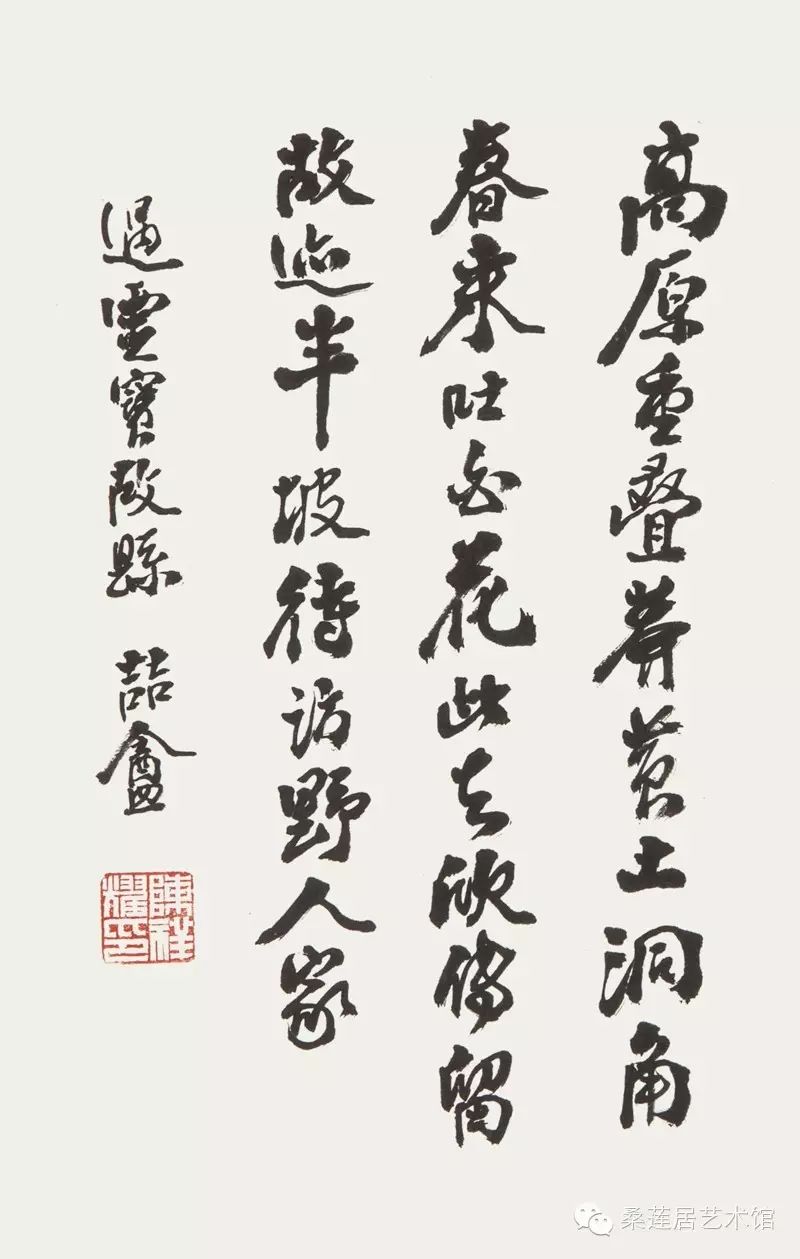 高原重叠莽黄土洞角
春来吐白花此去欣傳留
故迹半坡待访野人家
過靈寶故縣 喆盦
陳祥耀印
桑莲居艺术馆